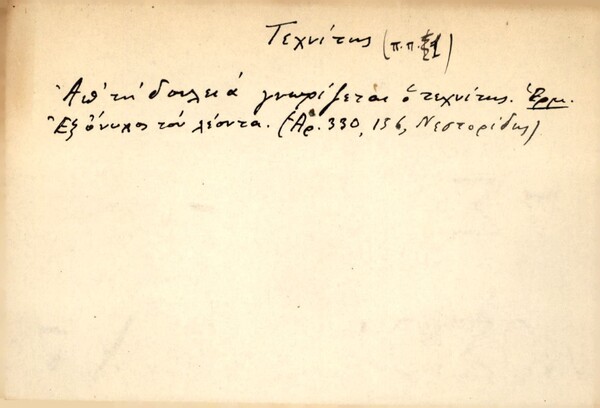 Τεχνίτης (π.π.
Ἀπ' τη δουλειά γνωρίζεται ὁ τεχνίτης. Ἑρμ.
Ἐξ ὄνυχος τον λέοντα. (Ἀρ. 330, 156, Νεστορίδης)